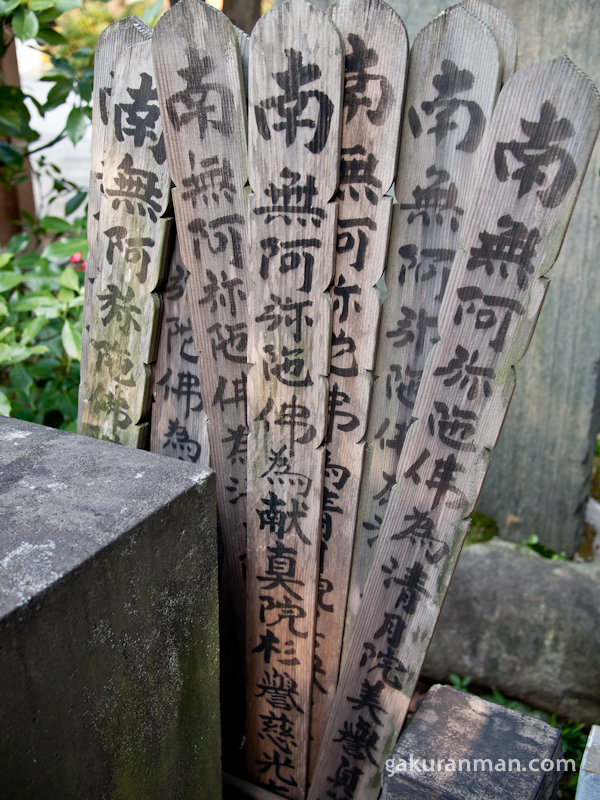 南無阿弥陀佛為清月院美譽真
南無阿弥陀佛為
南無阿弥陀佛為清月
南無阿弥陀佛為献真院杉譽慈光
南無阿弥陀佛為
弥陀佛為
南無阿弥陀佛
gakuranman.com